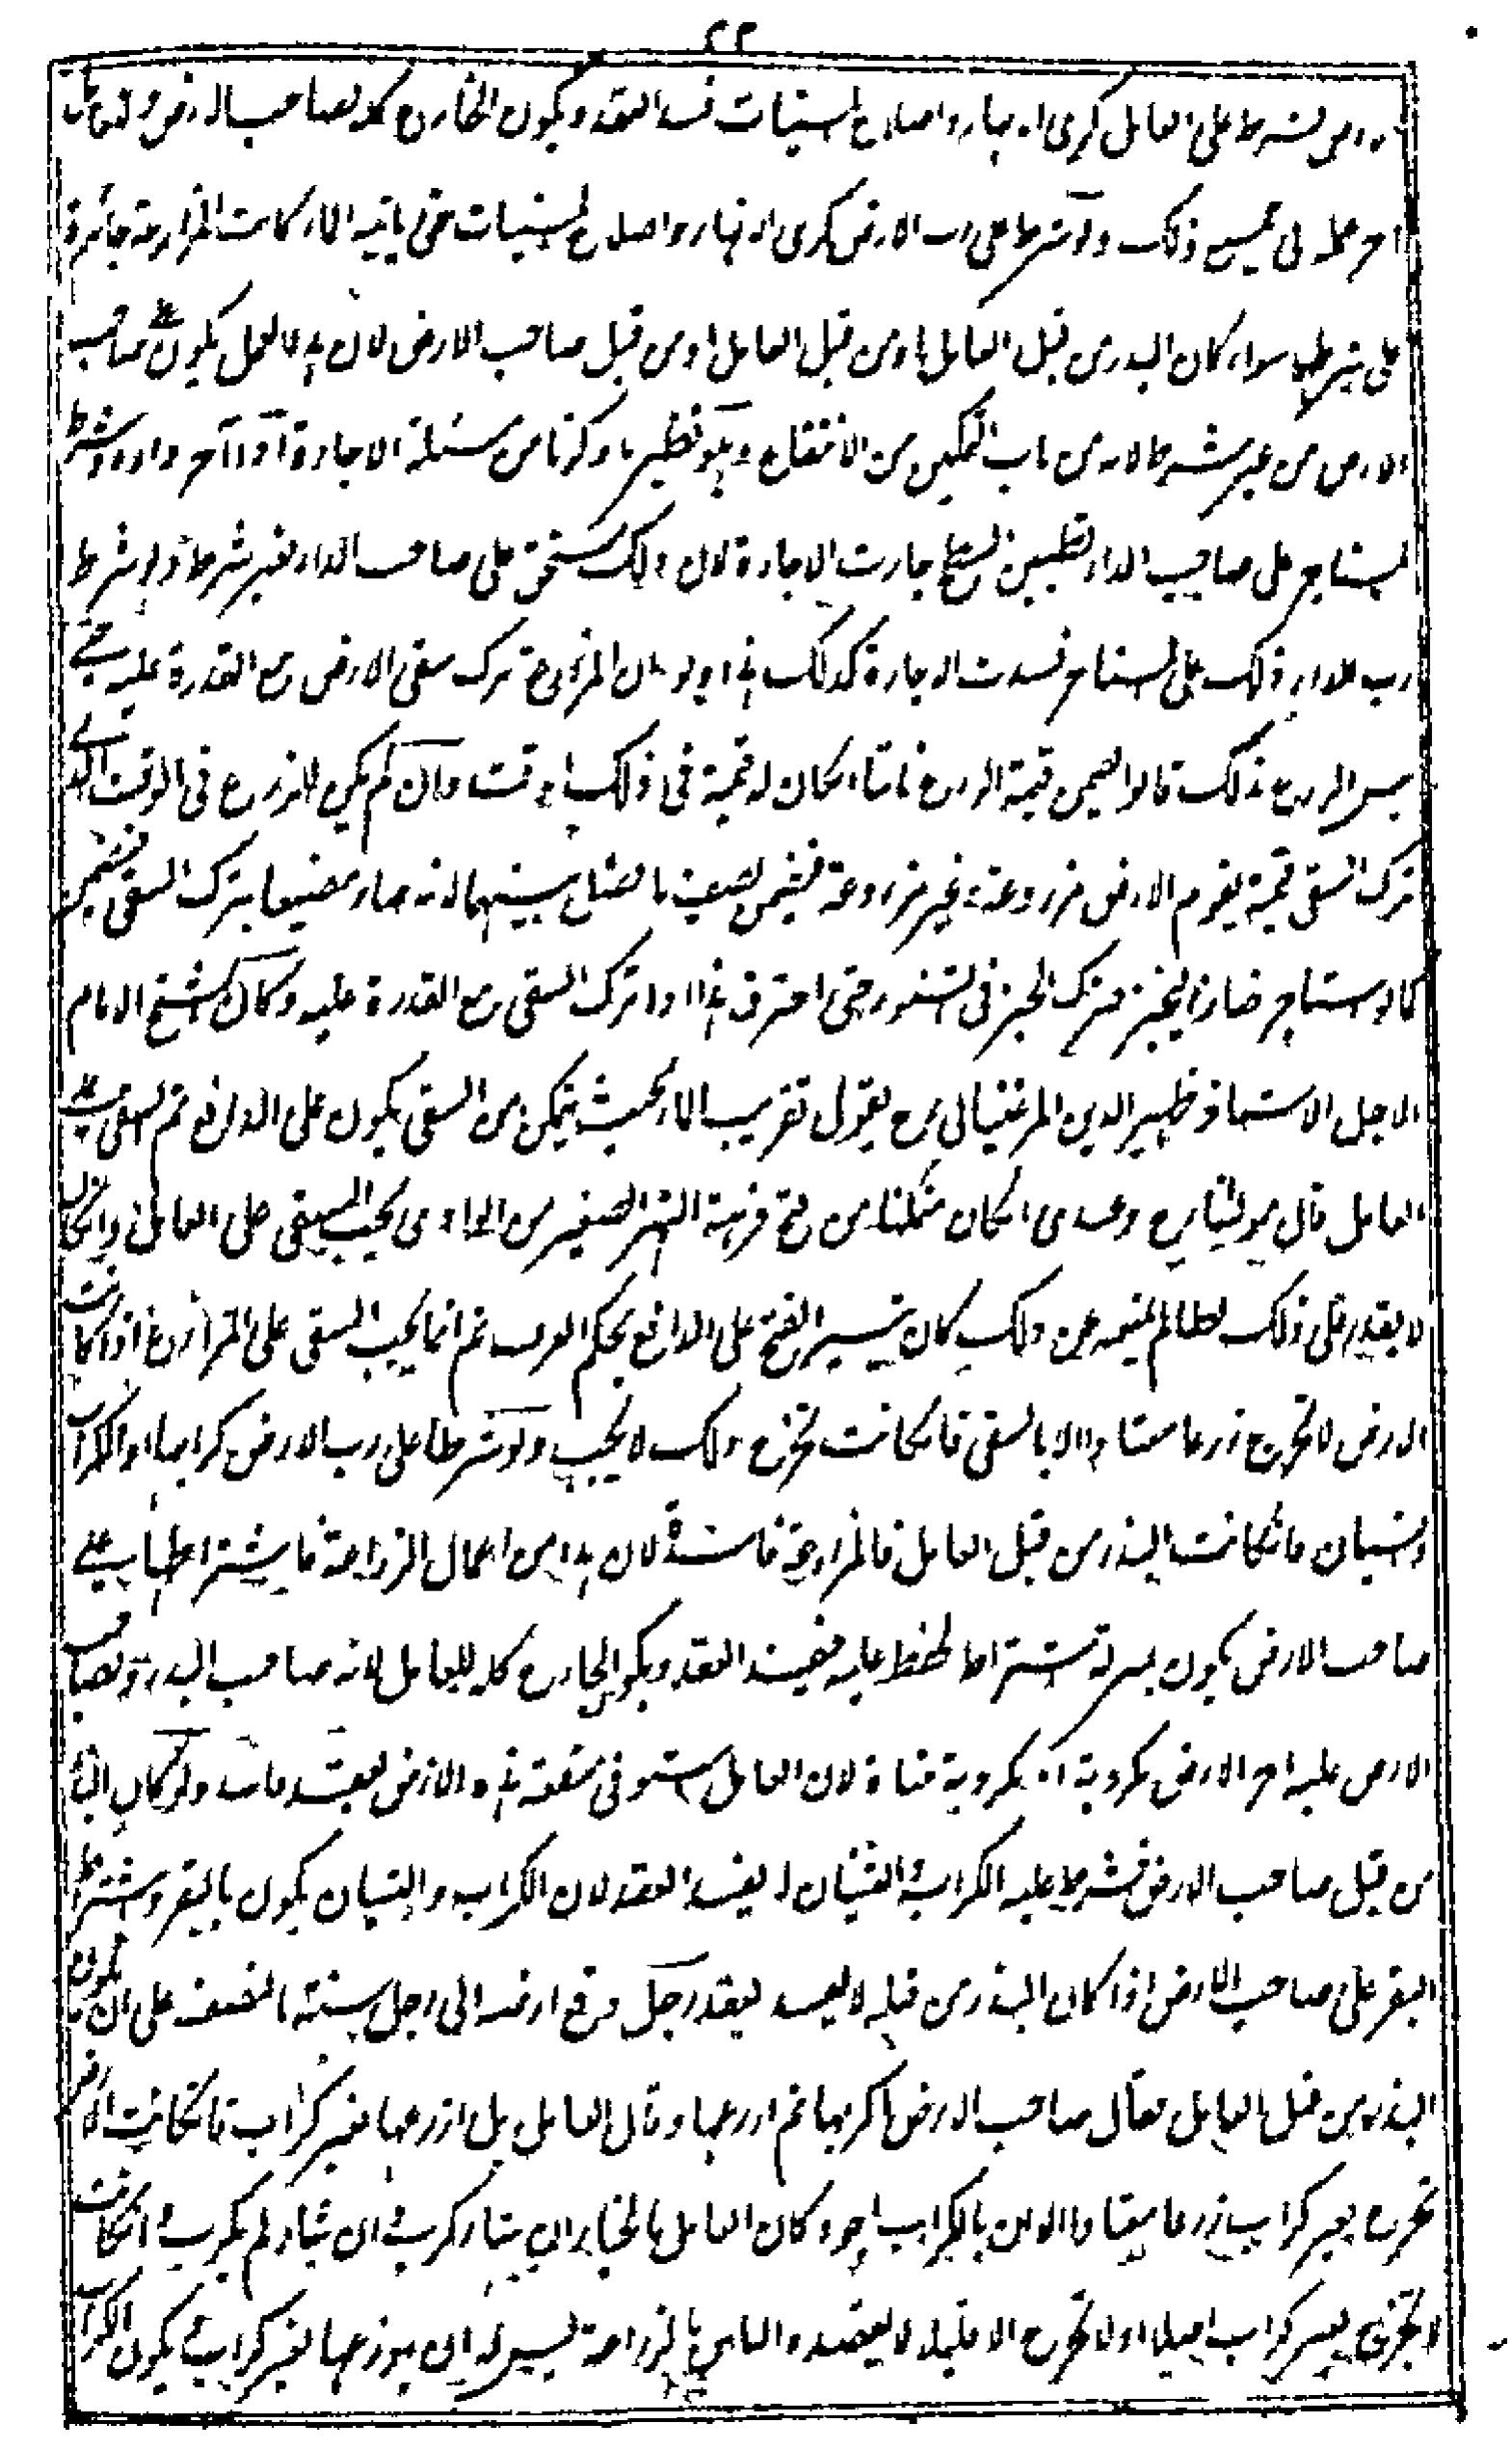 ٢٢
ولو شرطا على العامل كرى الانهار واصلاح المسنيات فسد العقد ويكون الخارج كله لصاحب الارض وللعامل
اجر عمله فى جميع ذلك ولو شرطا على رب الارض كرى الانهار واصلاح المسنيات حتى ياتيه الماء كانت المزارعة جائزة
على شرطهما سواء كان البذر من قبل العامل او من قبل صاحب الارض لان هذا العمل يكون على صاحب
الارض من غير شرط لانه من باب التمكين من الانتفاع وهو نظير ما ذكرنا من مسئلة الاجارة اذا آجر داره وشرط
المستاجر على صاحب الدار تطيين السطح جازت الاجارة لان ذلك مستحق على صاحب الدار بغير شرط ولو شرط
رب الدار ذلك على المستاجر فسدت الاجارة كذلك هذا ولو ان المزارع ترك سقى الارض مع القدرة عليه حتى
يبس الزرع بذلك قالوا يضمن قيمة الزرع نابتا ان كان له قيمة فى ذلك الوقت وان لم يكن للزرع فى الوقت الذى
ترك السقى قيمة يقوم الارض مزروعة وغير مزروعة فيضمن نصف ما ضاع بينهما لانه صار مضيعا بترك السقى فيضمن
كما لو استاجر خبازا ليخبز فترك الخبز فى التنور حتى احترق هذا اذا ترك السقى مع القدرة عليه وكان الشيخ الامام
الاجل الاستاذ ظهير الدين المرغينانى رح يقول تقريب الماء بحيث يتمكن من السقى يكون على الدافع ثم السقى على
العامل قال مولانا رح وعندى ان كان متمكنا من فتح فوهة النهر الصغير من الوادى يجب السقى على العامل وان كان
لا يقدر على ذلك لظالم يمنعه عن ذلك كان تيسير الفتح على الدافع بحكم العرف ثم انما يجب السقى على المزارع اذا كانت
الارض لا تخرج زرعا معتادا الا بالسقى فان كانت تخرج ذلك لا يجب ولو شرطا على رب الارض كرابها او الكراب
والثنيان فان كانت البذر من قبل العامل فالمزارعة فاسدة لان هذا من اعمال الزراعة فاشتراطها على
صاحب الارض يكون بمنزلة اشتراط الحفظ عليه فيفسد العقد ويكون الخارج كله للعامل لانه صاحب البذر ولصاحب
الارض عليه اجر الارض مكروبة او مكروبة مثناة لان العامل استوفى منفعة هذه الارض بعقد فاسد ولو كان البذر
من قبل صاحب الارض فشرط عليه الكراب والثنيان لا يفسد العقد لان الكراب والثنيان يكون بالبقر واشتراط
البقر على صاحب الارض اذا كان البذر من قبله لا يفسد العقد رجل دفع ارضه الى رجل سنة بالنصف على ان يكون
البذر من قبل العامل فقال صاحب الارض اكربها ثم ازرعها وقال العامل بل ازرعها بغير كراب فان كانت الارض
تخرج بغير كراب زرعا معتادا الا ان بالكراب اجود كان العامل بالخيار ان شاء كرب وان شاء لم يكرب وان كانت
لا تخرج بغير كراب اصلا او لا تخرج الا قليلا لا يقصده الناس بالزراعة ليس له ان يزرعها بغير كراب ويكون الكراب